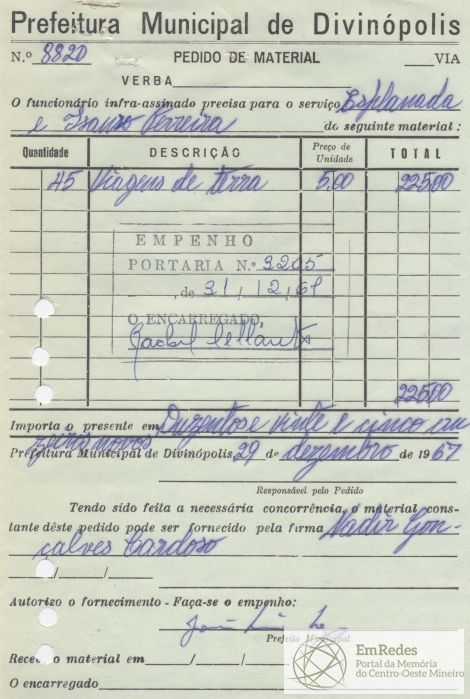 Prefeitura Municipal de Divinópolis
N.º 8820 PEDIDO DE MATERIAL VIA
VERBA
O funcionário infra-assinado precisa para o serviço Esplanada
e Isauro Ferreira do seguinte material :
Quantidade DESCRIÇÃO Preço de Unidade TOTAL
45 Viagens de terra 5,00 225,00
EMPENHO
PORTARIA N.º 3205
, de 31/12/67
O ENCARREGADO,
225,00
Importa o presente em Duzentos e vinte e cinco cru
zeiros novos
Prefeitura Municipal de Divinópolis, 29 de dezembro de 1967
Responsável pelo Pedido
Tendo sido feita a necessária concorrência, o material cons-
tante dêste pedido pode ser fornecido pela firma Nadir Gon-
çalves Cardoso
Autorizo o fornecimento - Faça-se o empenho:
Prefeito Municipal
Recebi o material em
O encarregado
EmRedes
Portal da Memória
do Centro-Oeste Mineiro